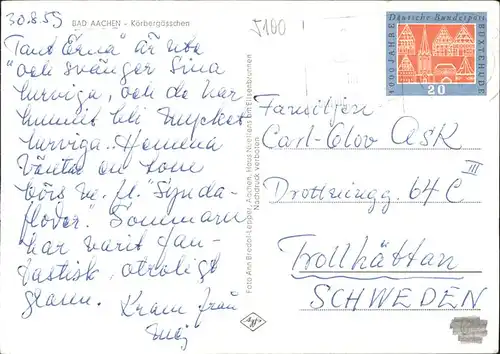 30.8.59
BAD AACHEN - Körbergässchen
Tant Erna är ute
och svänger sina
lurviga, och de har
hunnit bli mycket
lurviga. Hemma
väntar en som
"Synda-
floden". Sommaren
har varit fan-
tastisk, otroligt
grann.
Kram från
5100
Foto Ann Bredol-Lepper, Aachen, Haus Nuellens am Elisenbrunnen
Nachdruck verboten
1000 JAHRE
Deutsche Bundespost
BUXTEHUDE
20
Familjen
Carl-Olov Ask
Drottningg. 64 C III
Trollhättan
SCHWEDEN